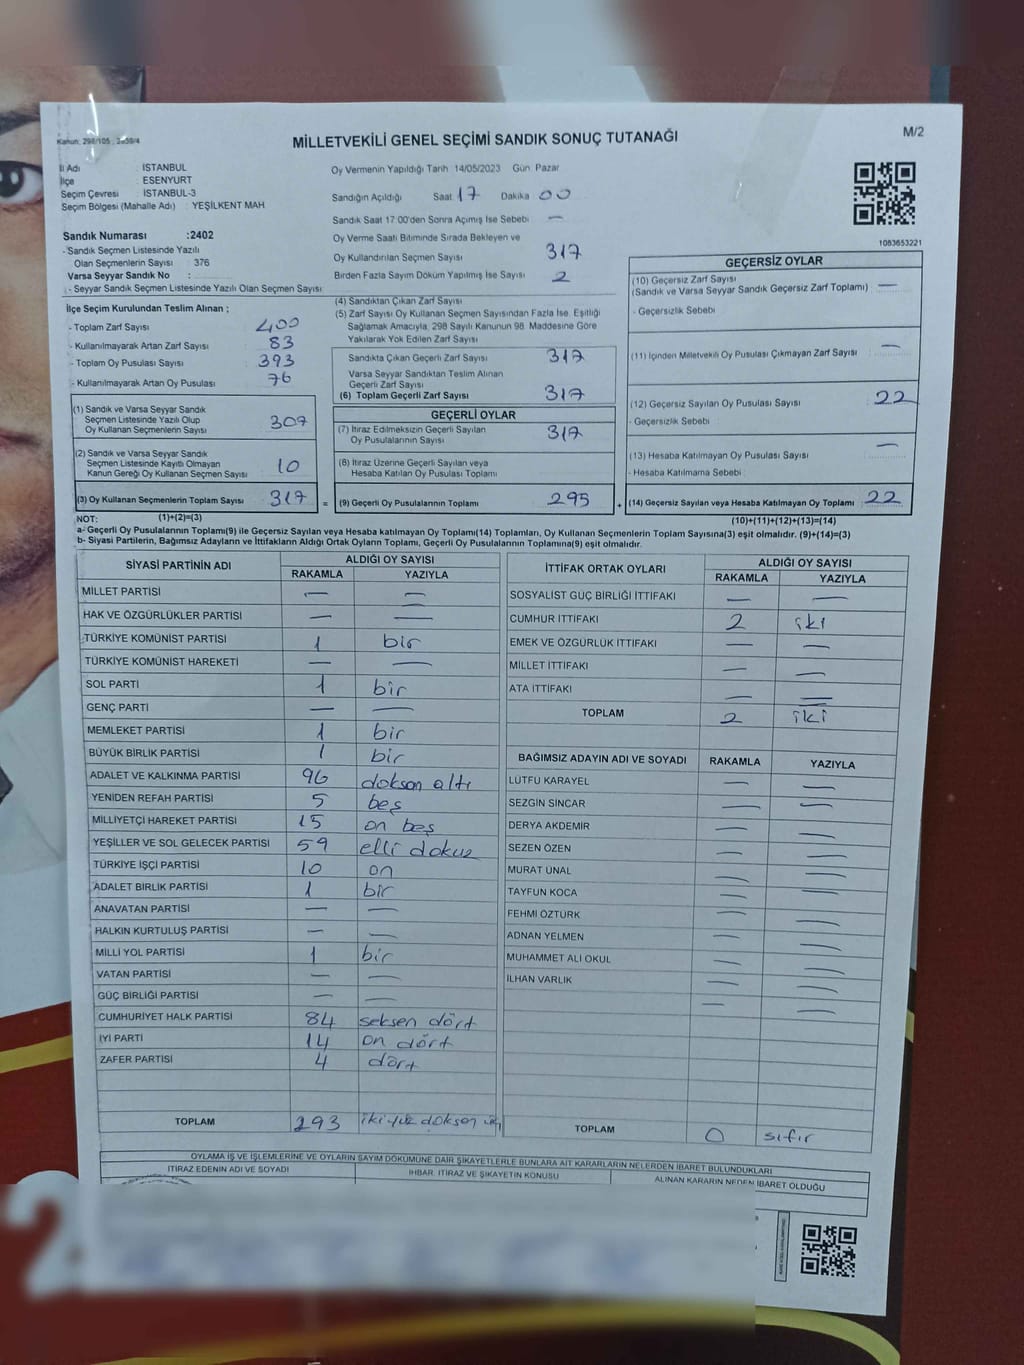 Kanun: 298/105 : 2839/4
MİLLETVEKİLİ GENEL SEÇİMİ SANDIK SONUÇ TUTANAĞI
M/2
İl Adı : İSTANBUL
İlçe : ESENYURT
Seçim Çevresi : İSTANBUL-3
Seçim Bölgesi (Mahalle Adı) : YEŞİLKENT MAH
Sandık Numarası :2402
- Sandık Seçmen Listesinde Yazılı
Olan Seçmenlerin Sayısı : 376
Varsa Seyyar Sandık No :
- Seyyar Sandık Seçmen Listesinde Yazılı Olan Seçmen Sayısı:
Oy Vermenin Yapıldığı Tarih 14/05/2023 Gün: Pazar
Sandığın Açıldığı Saat 17 Dakika 00
Sandık Saat 17:00'den Sonra Açılmış İse Sebebi —
Oy Verme Saati Bitiminde Sırada Bekleyen ve
Oy Kullandırılan Seçmen Sayısı 317
Birden Fazla Sayım Döküm Yapılmış İse Sayısı 2
1083653221
İlçe Seçim Kurulundan Teslim Alınan ;
- Toplam Zarf Sayısı 400
- Kullanılmayarak Artan Zarf Sayısı 83
- Toplam Oy Pusulası Sayısı 393
- Kullanılmayarak Artan Oy Pusulası 76
(1) Sandık ve Varsa Seyyar Sandık
Seçmen Listesinde Yazılı Olup
Oy Kullanan Seçmenlerin Sayısı 307
(2) Sandık ve Varsa Seyyar Sandık
Seçmen Listesinde Kayıtlı Olmayan
Kanun Gereği Oy Kullanan Seçmen Sayısı 10
(3) Oy Kullanan Seçmenlerin Toplam Sayısı 317 =
(4) Sandıktan Çıkan Zarf Sayısı
(5) Zarf Sayısı Oy Kullanan Seçmen Sayısından Fazla İse, Eşitliği
Sağlamak Amacıyla, 298 Sayılı Kanunun 98. Maddesine Göre
Yakılarak Yok Edilen Zarf Sayısı
Sandıkta Çıkan Geçerli Zarf Sayısı 317
Varsa Seyyar Sandıktan Teslim Alınan
Geçerli Zarf Sayısı
(6) Toplam Geçerli Zarf Sayısı 317
GEÇERLİ OYLAR
(7) İtiraz Edilmeksizin Geçerli Sayılan
Oy Pusulalarının Sayısı 317
(8) İtiraz Üzerine Geçerli Sayılan veya
Hesaba Katılan Oy Pusulası Toplamı
(9) Geçerli Oy Pusulalarının Toplamı 295 +
GEÇERSİZ OYLAR
(10) Geçersiz Zarf Sayısı
(Sandık ve Varsa Seyyar Sandık Geçersiz Zarf Toplamı) —
- Geçersizlik Sebebi
(11) İçinden Milletvekili Oy Pusulası Çıkmayan Zarf Sayısı —
(12) Geçersiz Sayılan Oy Pusulası Sayısı 22
- Geçersizlik Sebebi
(13) Hesaba Katılmayan Oy Pusulası Sayısı —
- Hesaba Katılmama Sebebi
(14) Geçersiz Sayılan veya Hesaba Katılmayan Oy Toplamı 22
NOT: (1)+(2)=(3)
(10)+(11)+(12)+(13)=(14)
a- Geçerli Oy Pusulalarının Toplamı(9) ile Geçersiz Sayılan veya Hesaba katılmayan Oy Toplamı(14) Toplamları, Oy Kullanan Seçmenlerin Toplam Sayısına(3) eşit olmalıdır. (9)+(14)=(3)
b- Siyasi Partilerin, Bağımsız Adayların ve İttifakların Aldığı Ortak Oyların Toplamı, Geçerli Oy Pusulalarının Toplamına(9) eşit olmalıdır.
SİYASİ PARTİNİN ADI ALDIĞI OY SAYISI
RAKAMLA YAZIYLA
MİLLET PARTİSİ — —
HAK VE ÖZGÜRLÜKLER PARTİSİ — —
TÜRKİYE KOMÜNİST PARTİSİ 1 bir
TÜRKİYE KOMÜNİST HAREKETİ — —
SOL PARTİ 1 bir
GENÇ PARTİ — —
MEMLEKET PARTİSİ 1 bir
BÜYÜK BİRLİK PARTİSİ 1 bir
ADALET VE KALKINMA PARTİSİ 96 doksan altı
YENİDEN REFAH PARTİSİ 5 beş
MİLLİYETÇİ HAREKET PARTİSİ 15 on beş
YEŞİLLER VE SOL GELECEK PARTİSİ 59 elli dokuz
TÜRKİYE İŞÇİ PARTİSİ 10 on
ADALET BİRLİK PARTİSİ 1 bir
ANAVATAN PARTİSİ — —
HALKIN KURTULUŞ PARTİSİ — —
MİLLİ YOL PARTİSİ 1 bir
VATAN PARTİSİ — —
GÜÇ BİRLİĞİ PARTİSİ — —
CUMHURİYET HALK PARTİSİ 84 seksen dört
İYİ PARTİ 14 on dört
ZAFER PARTİSİ 4 dört
TOPLAM 293 iki yüz doksan üç
İTTİFAK ORTAK OYLARI ALDIĞI OY SAYISI
RAKAMLA YAZIYLA
SOSYALİST GÜÇ BİRLİĞİ İTTİFAKI — —
CUMHUR İTTİFAKI 2 iki
EMEK VE ÖZGÜRLÜK İTTİFAKI — —
MİLLET İTTİFAKI — —
ATA İTTİFAKI — —
TOPLAM 2 iki
BAĞIMSIZ ADAYIN ADI VE SOYADI RAKAMLA YAZIYLA
LÜTFU KARAYEL — —
SEZGİN SİNCAR — —
DERYA AKDEMİR — —
SEZEN ÖZEN — —
MURAT ÜNAL — —
TAYFUN KOCA — —
FEHMİ ÖZTÜRK — —
ADNAN YELMEN — —
MUHAMMET ALİ OKUL — —
İLHAN VARLIK — —
TOPLAM 0 sıfır
OYLAMA İŞ VE İŞLEMLERİNE VE OYLARIN SAYIM DÖKÜMÜNE DAİR ŞİKAYETLERLE BUNLARA AİT KARARLARIN NELERDEN İBARET BULUNDUKLARI
İTİRAZ EDENİN ADI VE SOYADI İHBAR, İTİRAZ VE ŞİKAYETİN KONUSU ALINAN KARARIN NEDEN İBARET OLDUĞU